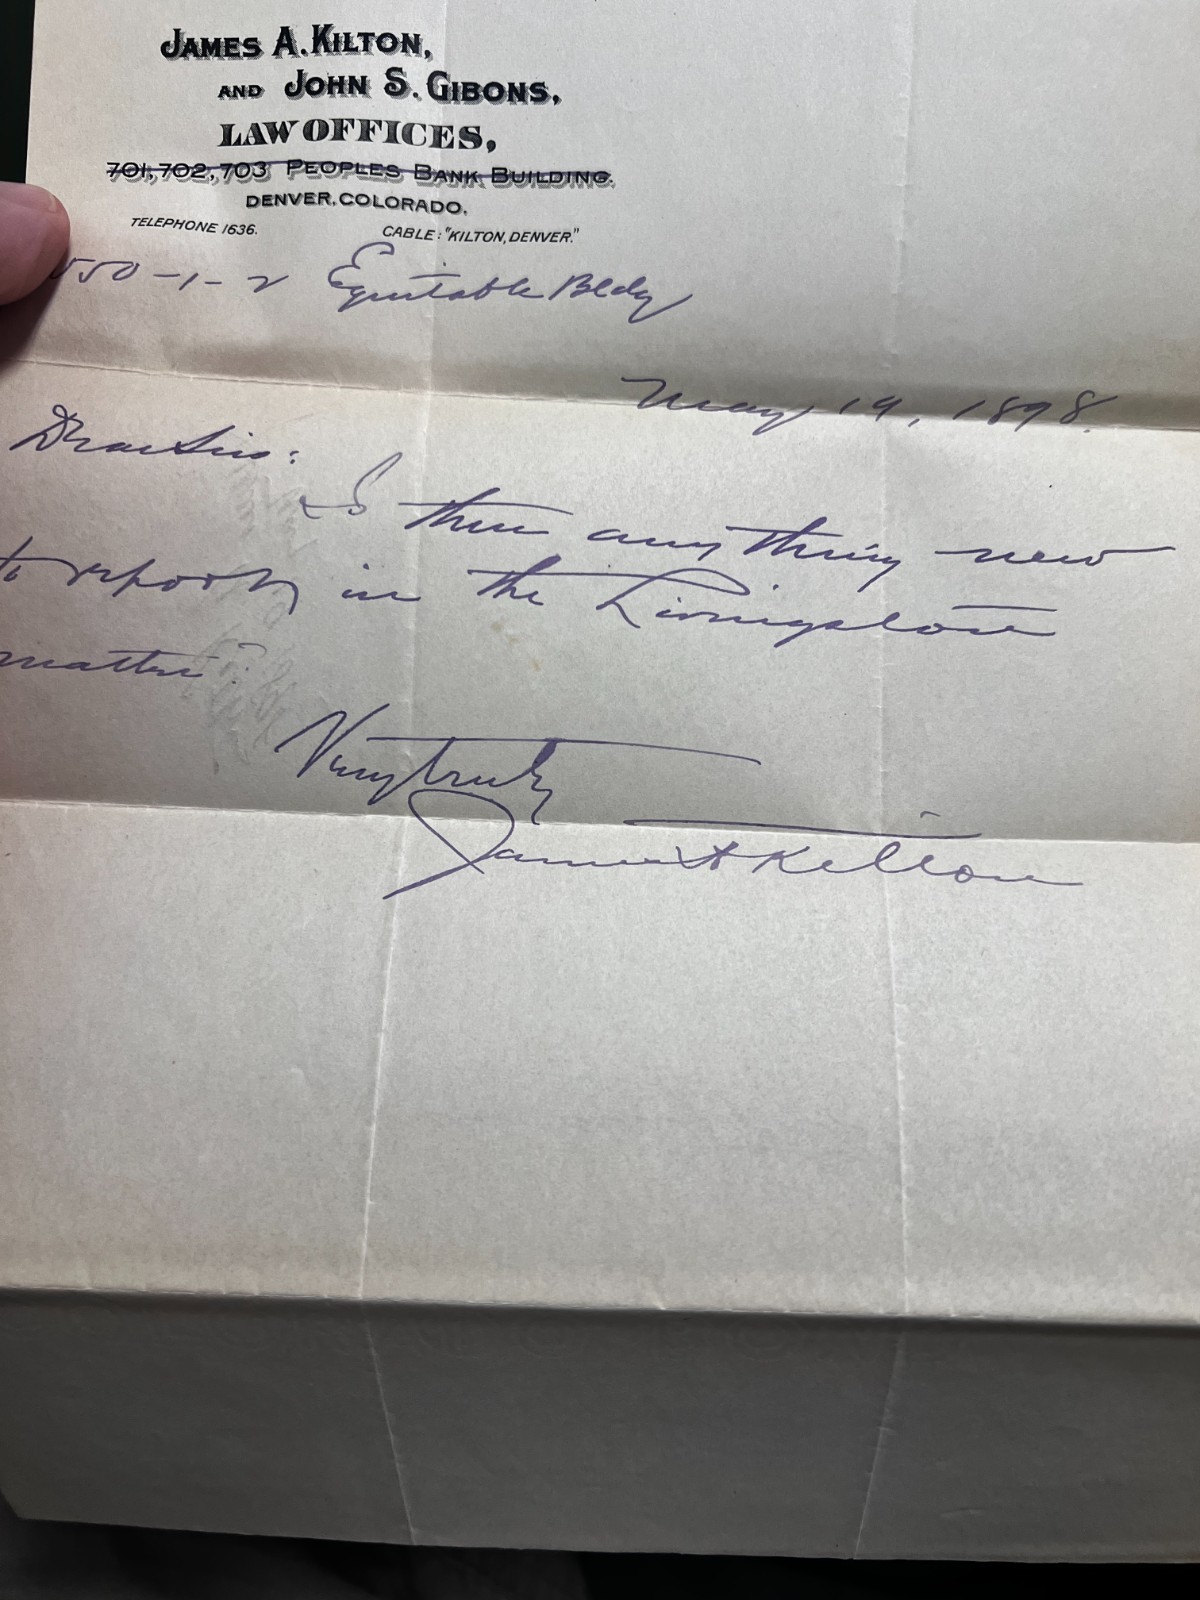 JAMES A. KILTON,
AND JOHN S. GIBONS,
LAW OFFICES,
701, 702, 703 PEOPLES BANK BUILDING.
DENVER, COLORADO.
TELEPHONE 1636. CABLE: "KILTON, DENVER."
550-1-2 Equitable Bldg
May 19, 1898.
Dear Sirs:
Is there anything new
to report in the Livingston
matter?
Very truly
James A Kilton